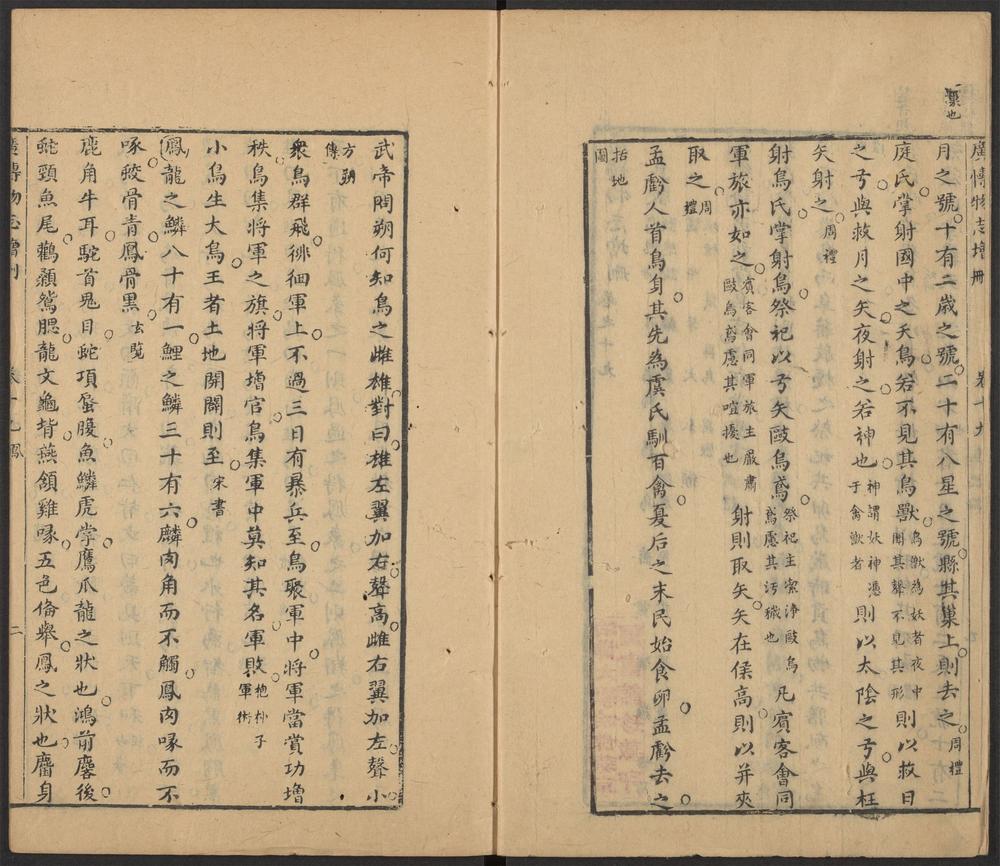 稾也
廣博物志增刪 卷十九
月之號十有二歲之號二十有八星之號縣其巢上則去之周禮
庭氏掌射國中之夭鳥若不見其鳥獸鳥獸為妖者夜中聞其聲不見其形則以救日
之弓與救月之矢夜射之若神也神謂妖神憑于禽獸者則以太陰之弓與枉
矢射之周禮
射鳥氏掌射鳥祭祀以弓矢敺鳥鳶祭祀主潔淨敺鳥鳶慮其污穢也凡賓客會同
軍旅亦如之賓客會同軍旅主嚴肅敺鳥鳶慮其喧擾也射則取矢矢在侯高則以并夾
取之周禮
孟虧人首鳥身其先為虞氏馴百禽夏后之末民始食卵孟虧去之
括地圖
武帝問朔何知鳥之雌雄對曰雄左翼加右聲高雌右翼加左聲小
方朔傳
衆鳥群飛徘徊軍上不過三日有暴兵至鳥聚軍中將軍當賞功增
秩鳥集將軍之旗將軍增官鳥集軍中莫知其名軍敗抱朴子軍術
小鳥生大鳥王者土地開闢則至宋書
鳳龍之鱗八十有一鯉之鱗三十有六麟肉角而不觸鳳肉喙而不
啄蛟骨青鳳骨黑玄覽
鹿角牛耳駝首鬼目蛇項蜃腹魚鱗虎掌鷹爪龍之狀也鴻前麐後
蛇頸魚尾鸛顙鴛腮龍文龜背燕頷雞喙五色偹舉鳳之狀也麕身
廣博物志增刪 卷十九鳳 二